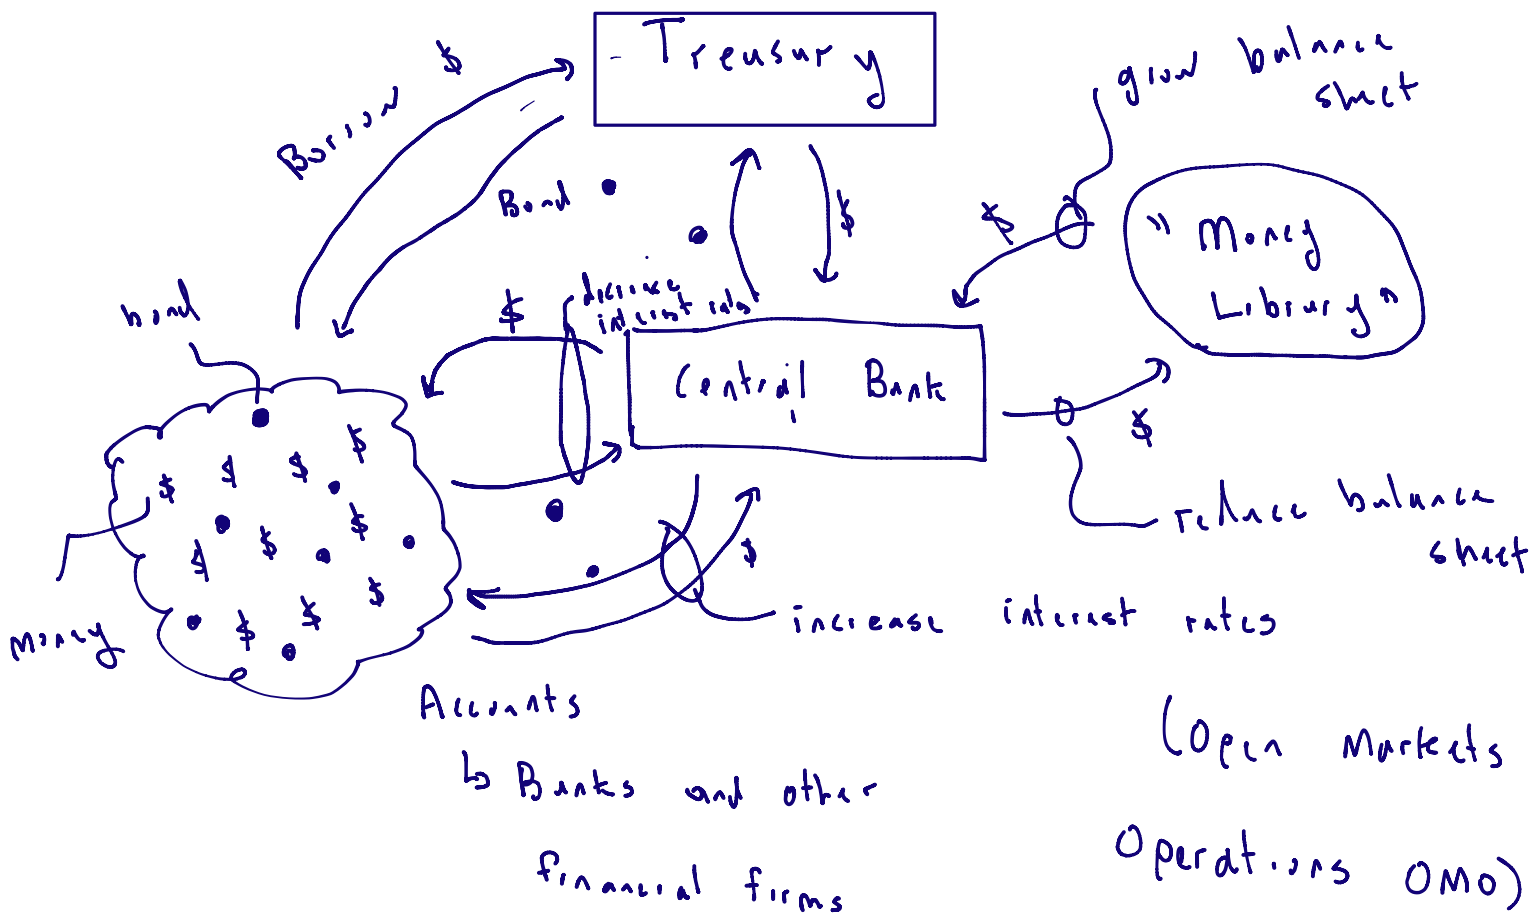 Treasury
$
Borrow
Bond
$
$
grow balance
sheet
"Money
Library"
bond
$
decrease
interest rates
Central Bank
$
$
$
$
$
$
$
$
$
$
$
$
money
reduce balance
sheet
increase interest rates
Accounts
↳ Banks and other
financial firms
(Open Markets
Operations OMO)